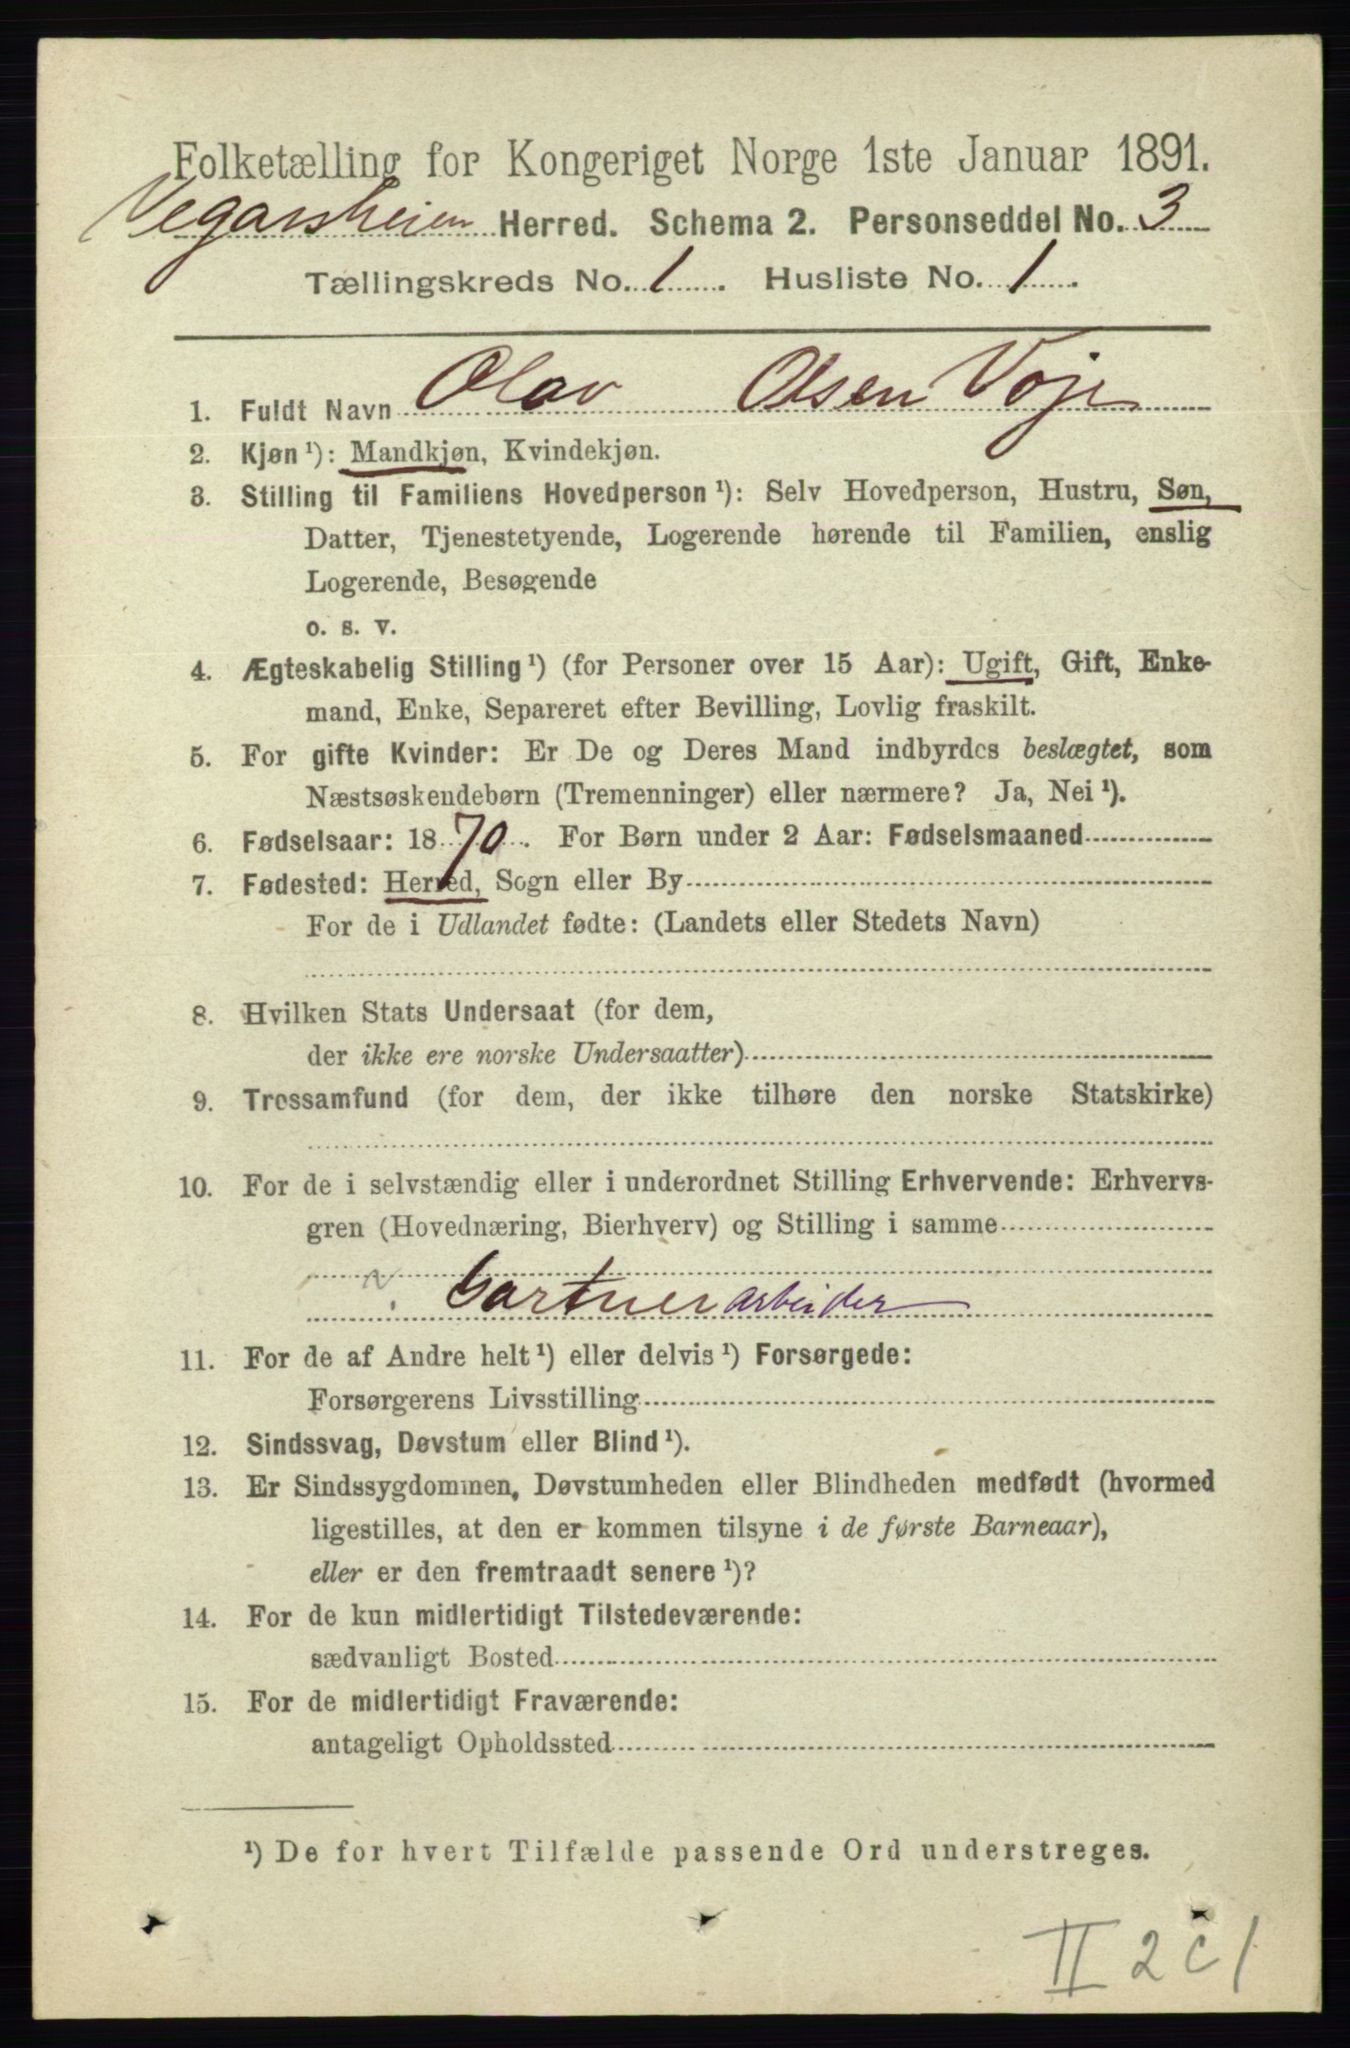 Folketælling for Kongeriget Norge 1ste Januar 1891.
Vegarsheien Herred. Schema 2. Personseddel No. 3
Tællingskreds No. 1. Husliste No. 1.
1. Fuldt Navn Olav Olsen Voje
2. Kjøn ¹): Mandkjøn, Kvindekjøn.
3. Stilling til Familiens Hovedperson ¹): Selv Hovedperson, Hustru, Søn,
Datter, Tjenestetyende, Logerende hørende til Familien, enslig
Logerende, Besøgende
o. s. v.
4. Ægteskabelig Stilling ¹) (for Personer over 15 Aar): Ugift, Gift, Enke-
mand, Enke, Separeret efter Bevilling, Lovlig fraskilt.
5. For gifte Kvinder: Er De og Deres Mand indbyrdes beslægtet, som
Næstsøskendebørn (Tremenninger) eller nærmere? Ja, Nei ¹).
6. Fødselsaar: 1870. For Børn under 2 Aar: Fødselsmaaned
7. Fødested: Herred, Sogn eller By
For de i Udlandet fødte: (Landets eller Stedets Navn)
8. Hvilken Stats Undersaat (for dem,
der ikke ere norske Undersaatter)
9. Trossamfund (for dem, der ikke tilhøre den norske Statskirke)
10. For de i selvstændig eller i underordnet Stilling Erhvervende: Erhvervs-
gren (Hovednæring, Bierhverv) og Stilling i samme
Gartnerarbeider
11. For de af Andre helt ¹) eller delvis ¹) Forsørgede:
Forsørgerens Livsstilling
12. Sindssvag, Døvstum eller Blind ¹).
13. Er Sindssygdommen, Døvstumheden eller Blindheden medfødt (hvormed
ligestilles, at den er kommen tilsyne i de første Barneaar),
eller er den fremtraadt senere ¹)?
14. For de kun midlertidigt Tilstedeværende:
sædvanligt Bosted
15. For de midlertidigt Fraværende:
antageligt Opholdssted
¹) De for hvert Tilfælde passende Ord understreges.
II 2 c 1